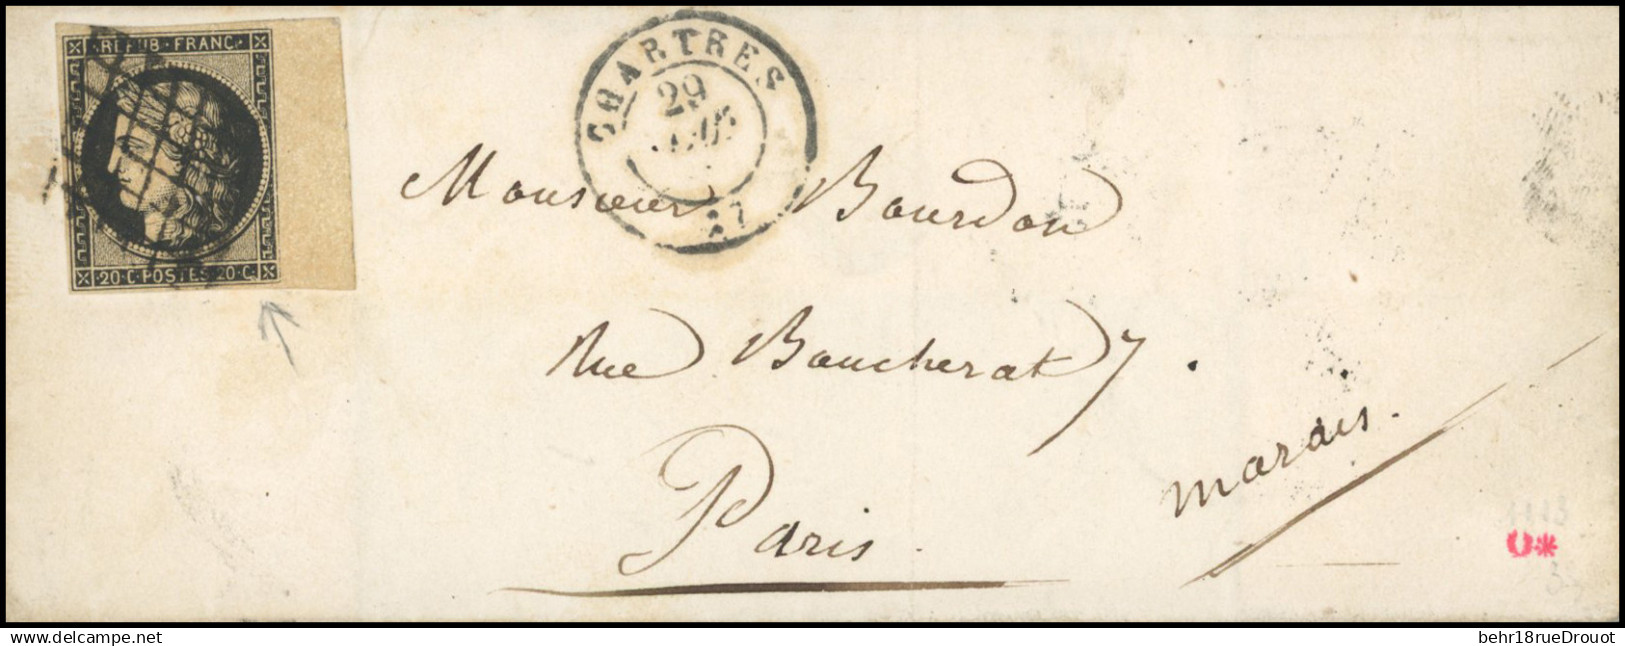 REPUB·FRANC·
20·C·POSTES·20·C·
CHARTRES
29
AOUT
27
Monsieur Bourdon
Rue Boucherat 7.
Paris.
Marais.
1113
www.delcampe.net
behr18rueDrouot